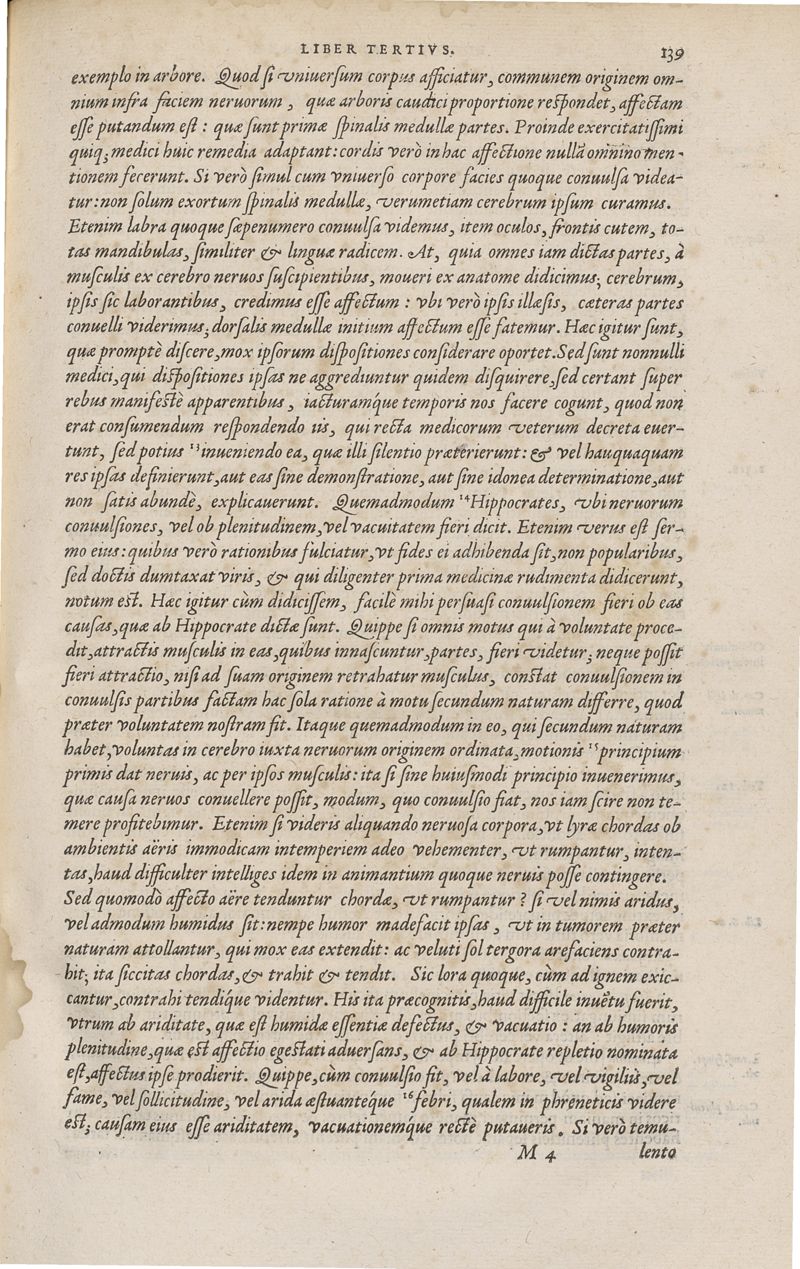 LIBER TERTIVS. 139
exemplo in arbore. Quod si vniuersum corpus afficiatur, communem originem om-
nium infra faciem neruorum, quæ arboris caudici proportione respondet, affectam
esse putandum est: quæ sunt primæ spinalis medullæ partes. Proinde exercitatissimi
quiq; medici huic remedia adaptant: cordis verò in hac affectione nullā omnino men-
tionem fecerunt. Si verò simul cum vniuerso corpore facies quoque conuulsa videa-
tur: non solum exortum spinalis medullæ, verumetiam cerebrum ipsum curamus.
Etenim labra quoque sæpenumero conuulsa videmus, item oculos, frontis cutem, to-
tas mandibulas, similiter & linguæ radicem. At, quia omnes iam dictas partes, à
musculis ex cerebro neruos suscipientibus, moueri ex anatome didicimus; cerebrum,
ipsis sic laborantibus, credimus esse affectum: vbi verò ipsis illæsis, cæteras partes
conuelli viderimus; dorsalis medullæ initium affectum esse fatemur. Hæc igitur sunt,
quæ promptè discere, mox ipsorum dispositiones considerare oportet. Sed sunt nonnulli
medici, qui dispositiones ipsas ne aggrediuntur quidem disquirere, sed certant super
rebus manifestè apparentibus, iacturamq́ue temporis nos facere cogunt, quod non
erat consumendum respondendo iis, qui recta medicorum veterum decreta euer-
tunt, sed potius ¹³inueniendo ea, quæ illi silentio præterierunt: & vel hauquaquam
res ipsas definierunt, aut eas sine demonstratione, aut sine idonea determinatione, aut
non satis abundè, explicauerunt. Quemadmodum ¹⁴Hippocrates, vbi neruorum
conuulsiones, vel ob plenitudinem, vel vacuitatem fieri dicit. Etenim verus est ser-
mo eius: quibus verò rationibus fulciatur, vt fides ei adhibenda sit, non popularibus,
sed doctis dumtaxat viris, & qui diligenter prima medicinæ rudimenta didicerunt,
notum est. Hæc igitur cùm didicissem, facilè mihi persuasi conuulsionem fieri ob eas
causas, quæ ab Hippocrate dictæ sunt. Quippe si omnis motus qui à voluntate proce-
dit, attractis musculis in eas, quibus innascuntur, partes, fieri videtur; neque possit
fieri attractio, nisi ad suam originem retrahatur musculus, constat conuulsionem in
conuulsis partibus factam hac sola ratione à motu secundum naturam differre, quod
præter voluntatem nostram fit. Itaque quemadmodum in eo, qui secundum naturam
habet, voluntas in cerebro iuxta neruorum originem ordinata, motionis ¹⁵principium
primis dat neruis, ac per ipsos musculis: ita si sine huiusmodi principio inuenerimus,
quæ causa neruos conuellere possit, modum, quo conuulsio fiat, nos iam scire non te-
mere profitebimur. Etenim si videris aliquando neruosa corpora, vt lyræ chordas ob
ambientis aëris immodicam intemperiem adeo vehementer, vt rumpantur, inten-
tas, haud difficulter intelliges idem in animantium quoque neruis posse contingere.
Sed quomodò affecto aëre tenduntur chordæ, vt rumpantur? si vel nimis aridus,
vel admodum humidus sit: nempe humor madefacit ipsas, vt in tumorem præter
naturam attollantur, qui mox eas extendit: ac veluti sol tergora arefaciens contra-
hit; ita siccitas chordas, & trahit & tendit. Sic lora quoque, cùm ad ignem exic-
cantur, contrahi tendiq́ue videntur. His ita præcognitis, haud difficile inuētu fuerit,
vtrum ab ariditate, quæ est humidæ essentiæ defectus, & vacuatio: an ab humoris
plenitudine, quæ est affectio egestati aduersans, & ab Hippocrate repletio nominata
est, affectus ipse prodierit. Quippe, cùm conuulsio fit, vel à labore, vel vigiliis, vel
fame, vel sollicitudine, vel arida æstuanteq́ue ¹⁶febri, qualem in phreneticis videre
est; causam eius esse ariditatem, vacuationemq́ue rectè putaueris. Si verò temu-
M 4 lento